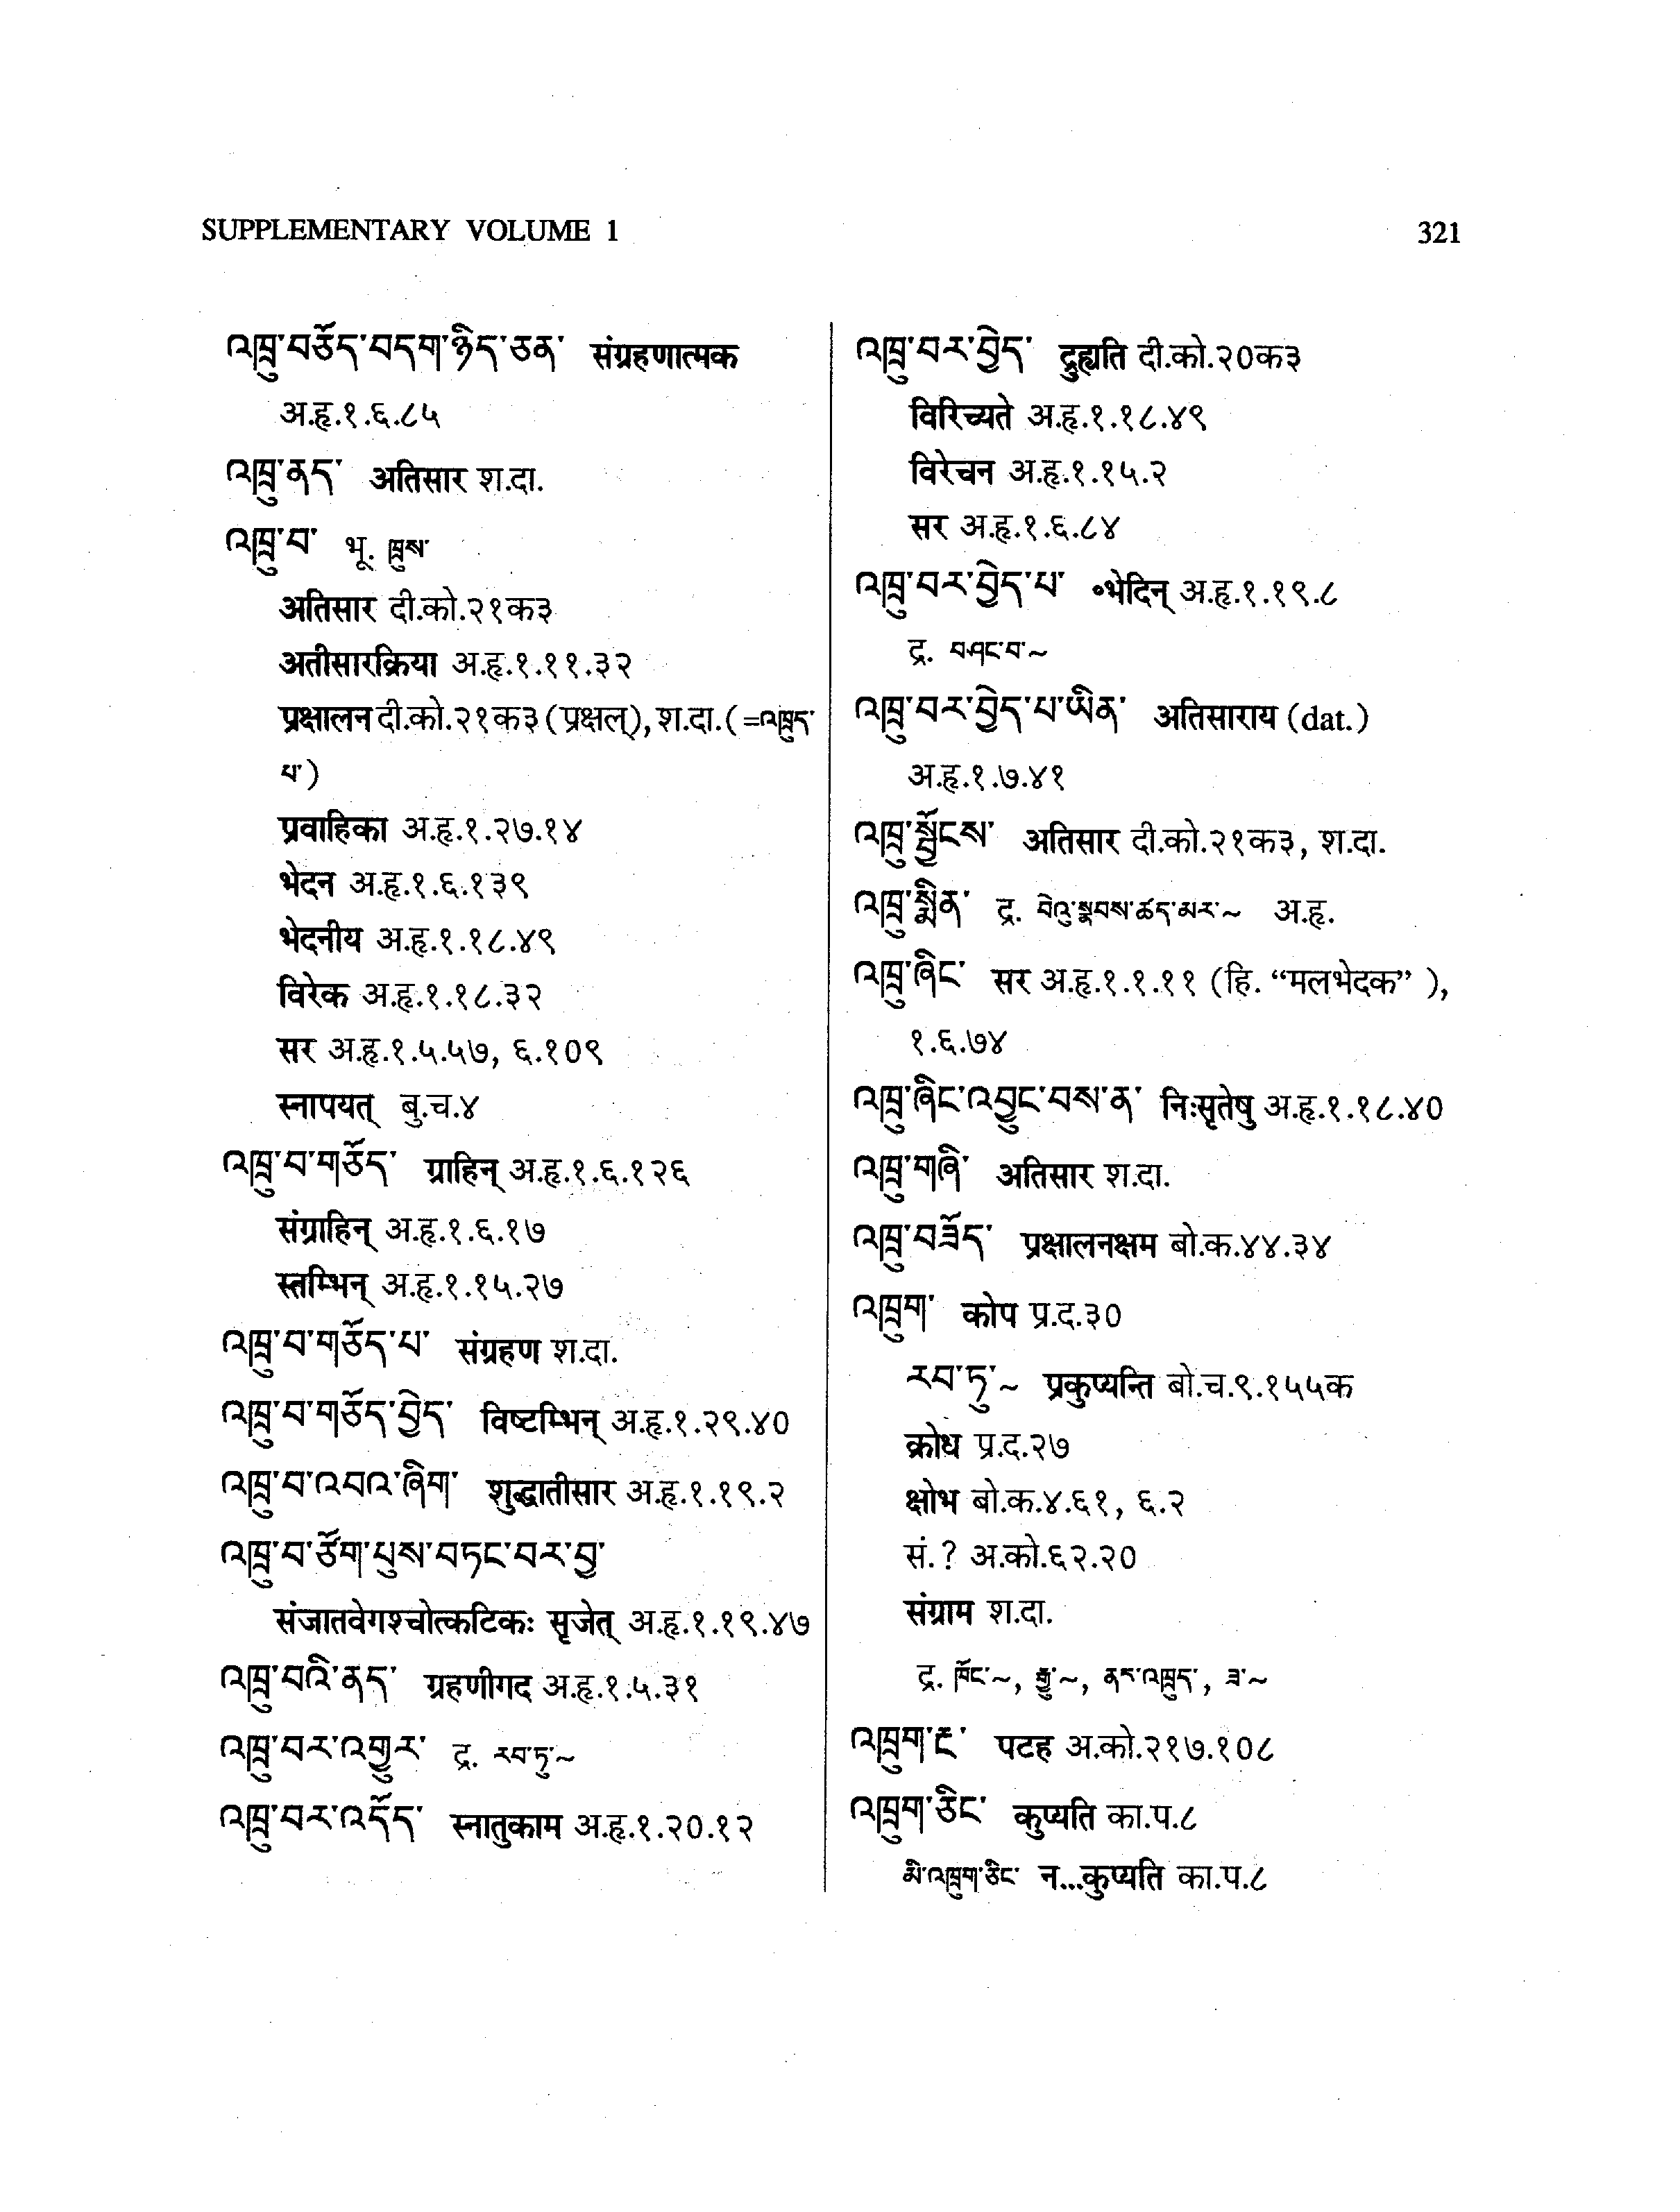 SUPPLEMENTARY VOLUME 1
321
འཁྲུ་བཅོད་བདག་ཉིད་ཅན་ संग्रहणात्मक
अ.हृ.१.६.८५
འཁྲུ་ནད་ अतिसार श.दा.
འཁྲུ་བ་ भू. ཁྲུས་
अतिसार दी.को.२१क३
अतीसारक्रिया अ.हृ.१.११.३२
प्रक्षालन दी.को.२१क३ (प्रक्षल्), श.दा. (=འཁྲུད་
པ་)
प्रवाहिका अ.हृ.१.२७.१४
भेदन अ.हृ.१.६.१३९
भेदनीय अ.हृ.१.१८.४९
विरेक अ.हृ.१.१८.३२
सर अ.हृ.१.५.५७, ६.१०९
स्नापयत् बु.च.४
འཁྲུ་བ་གཅོད་ ग्राहिन् अ.हृ.१.६.१२६
संग्राहिन् अ.हृ.१.६.१७
स्तम्भिन् अ.हृ.१.१५.२७
འཁྲུ་བ་གཅོད་པ་ संग्रहण श.दा.
འཁྲུ་བ་གཅོད་བྱེད་ विष्टम्भिन् अ.हृ.१.२९.४०
འཁྲུ་བ་འབའ་ཞིག་ शुद्धातीसार अ.हृ.१.१९.२
འཁྲུ་བ་ཙོག་པུས་བཏང་བར་བྱ་
संजातवेगश्चोत्कटिकः सृजेत् अ.हृ.१.१९.४७
འཁྲུ་བའི་ནད་ ग्रहणीगद अ.हृ.१.५.३१
འཁྲུ་བར་འགྱུར་ द्र. རབ་ཏུ་~
འཁྲུ་བར་འདོད་ स्नातुकाम अ.हृ.१.२०.१२
འཁྲུ་བར་བྱེད་ द्रुह्यति दी.को.२०क३
विरिच्यते अ.हृ.१.१८.४९
विरेचन अ.हृ.१.१५.२
सर अ.हृ.१.६.८४
འཁྲུ་བར་བྱེད་པ་ ॰भेदिन् अ.हृ.१.१९.८
द्र. བཤང་བ་~
འཁྲུ་བར་བྱེད་པ་ཡིན་ अतिसाराय (dat.)
अ.हृ.१.७.४१
འཁྲུ་སྦྱོངས་ अतिसार दी.को.२१क३, श.दा.
འཁྲུ་སྨིན་ द्र. བེའུ་སྣབས་ཚད་མར་~ अ.हृ.
འཁྲུ་ཞིང་ सर अ.हृ.१.१.११ (हि. “मलभेदक” ),
१.६.७४
འཁྲུ་ཞིང་འབྱུང་བས་ན་ निःसृतेषु अ.हृ.१.१८.४०
འཁྲུ་གཞི་ अतिसार श.दा.
འཁྲུ་བཟོད་ प्रक्षालनक्षम बो.क.४४.३४
འཁྲུག་ कोप प्र.द.३०
རབ་ཏུ་~ प्रकुप्यन्ति बो.च.९.१५५क
क्रोध प्र.द.२७
क्षोभ बो.क.४.६१, ६.२
सं.? अ.को.६२.२०
संग्राम श.दा.
द्र. ཁོང་~, རྒྱུ་~, ནར་འཁྲུད་, ཟ་~
འཁྲུག་རྔ་ पटह अ.को.२१७.१०८
འཁྲུག་ཅིང་ कुप्यति का.प.८
མི་འཁྲུག་ཅིང་ न...कुप्यति का.प.८